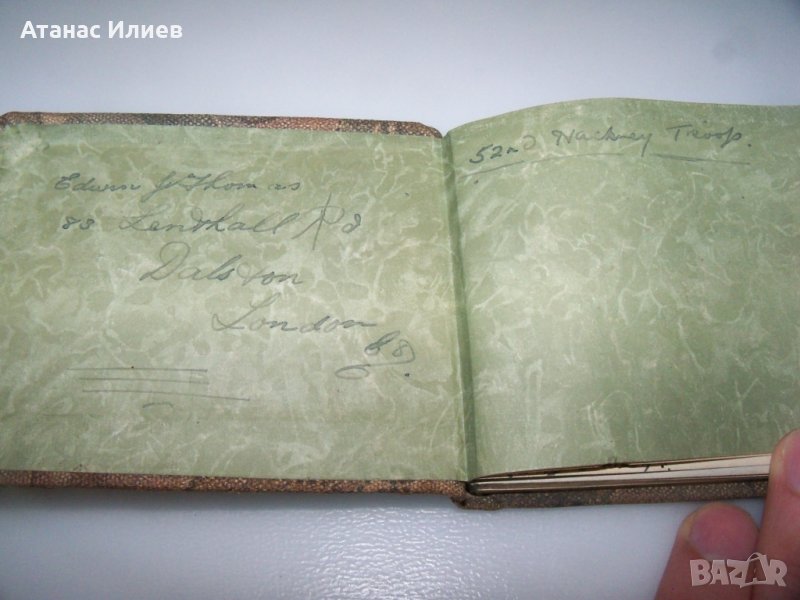 Атанас Илиев
Edwin J Thomas
83 Lenthall Rd
Dalston
London
E8.
52nd Hackney Troop.
BAZAR